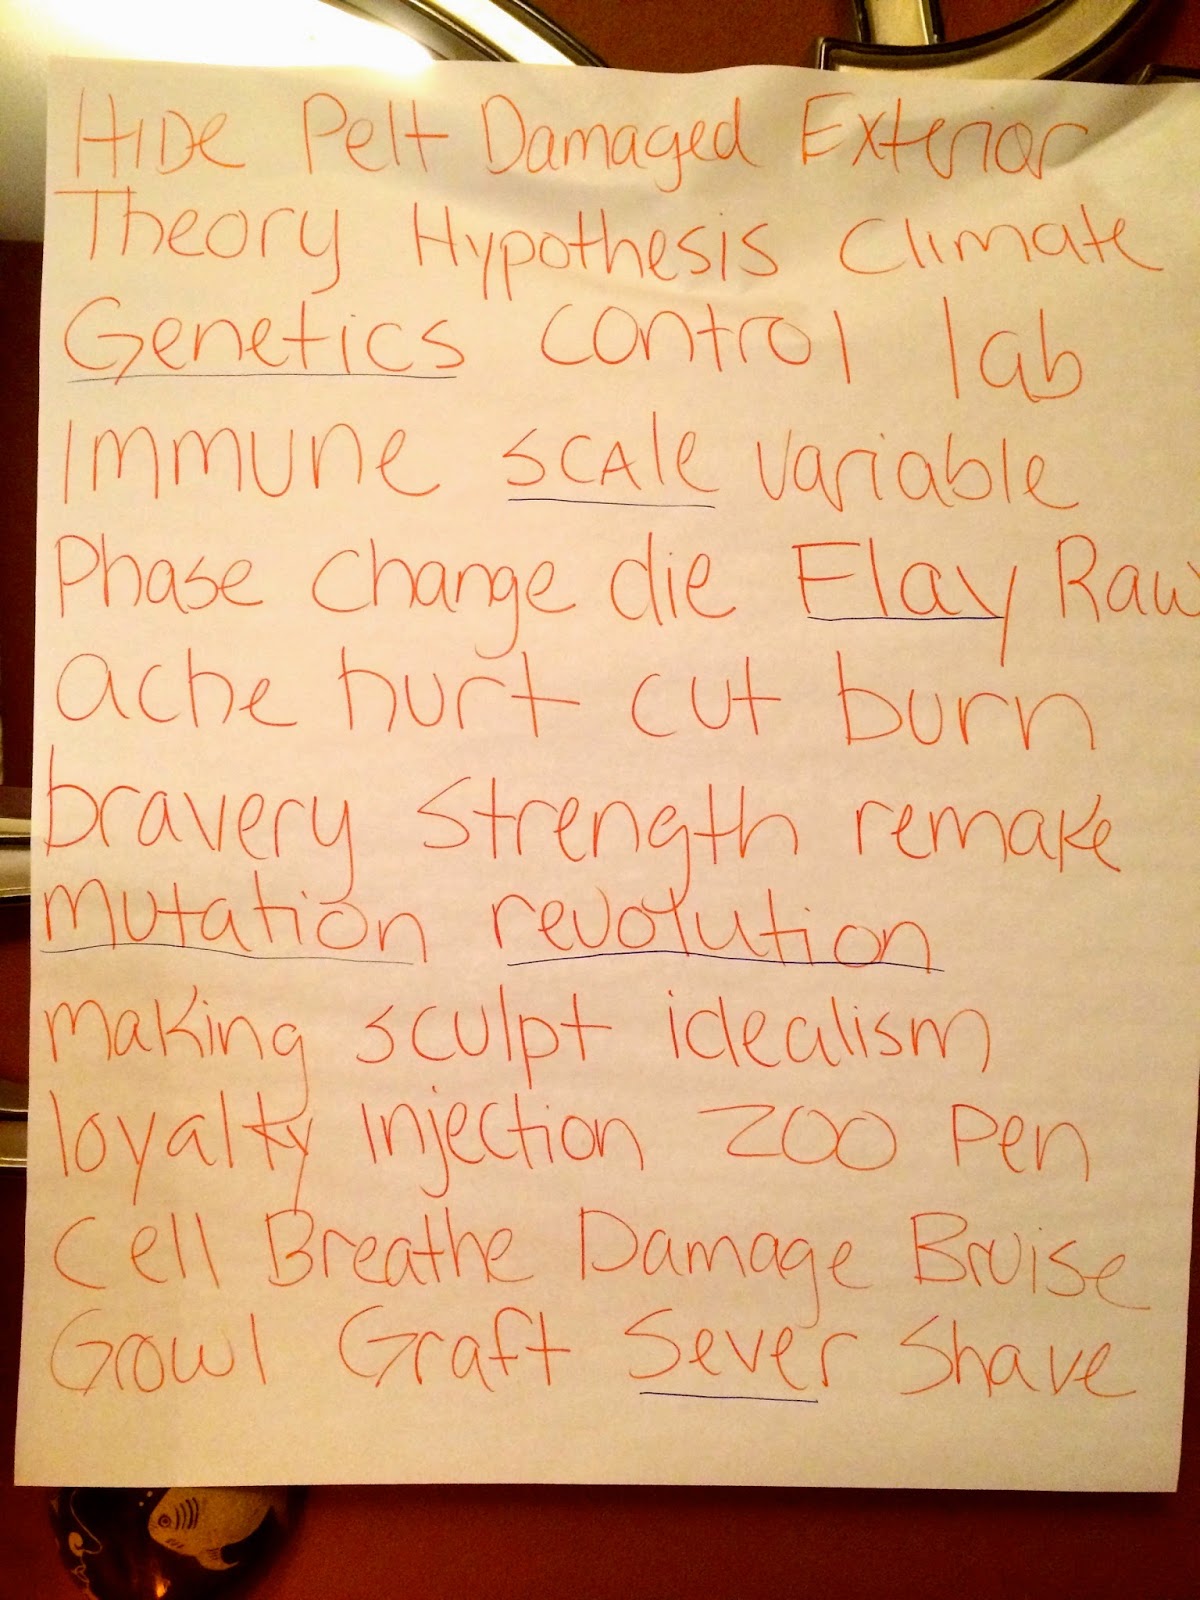 HIDE Pelt Damaged Exterior
Theory Hypothesis Climate
Genetics control lab
Immune SCAle variable
Phase change die Flay Raw
ache hurt cut burn
bravery strength remake
mutation revolution
making sculpt idealism
loyalty injection zoo pen
Cell Breathe Damage Bruise
Growl Graft Sever Shave